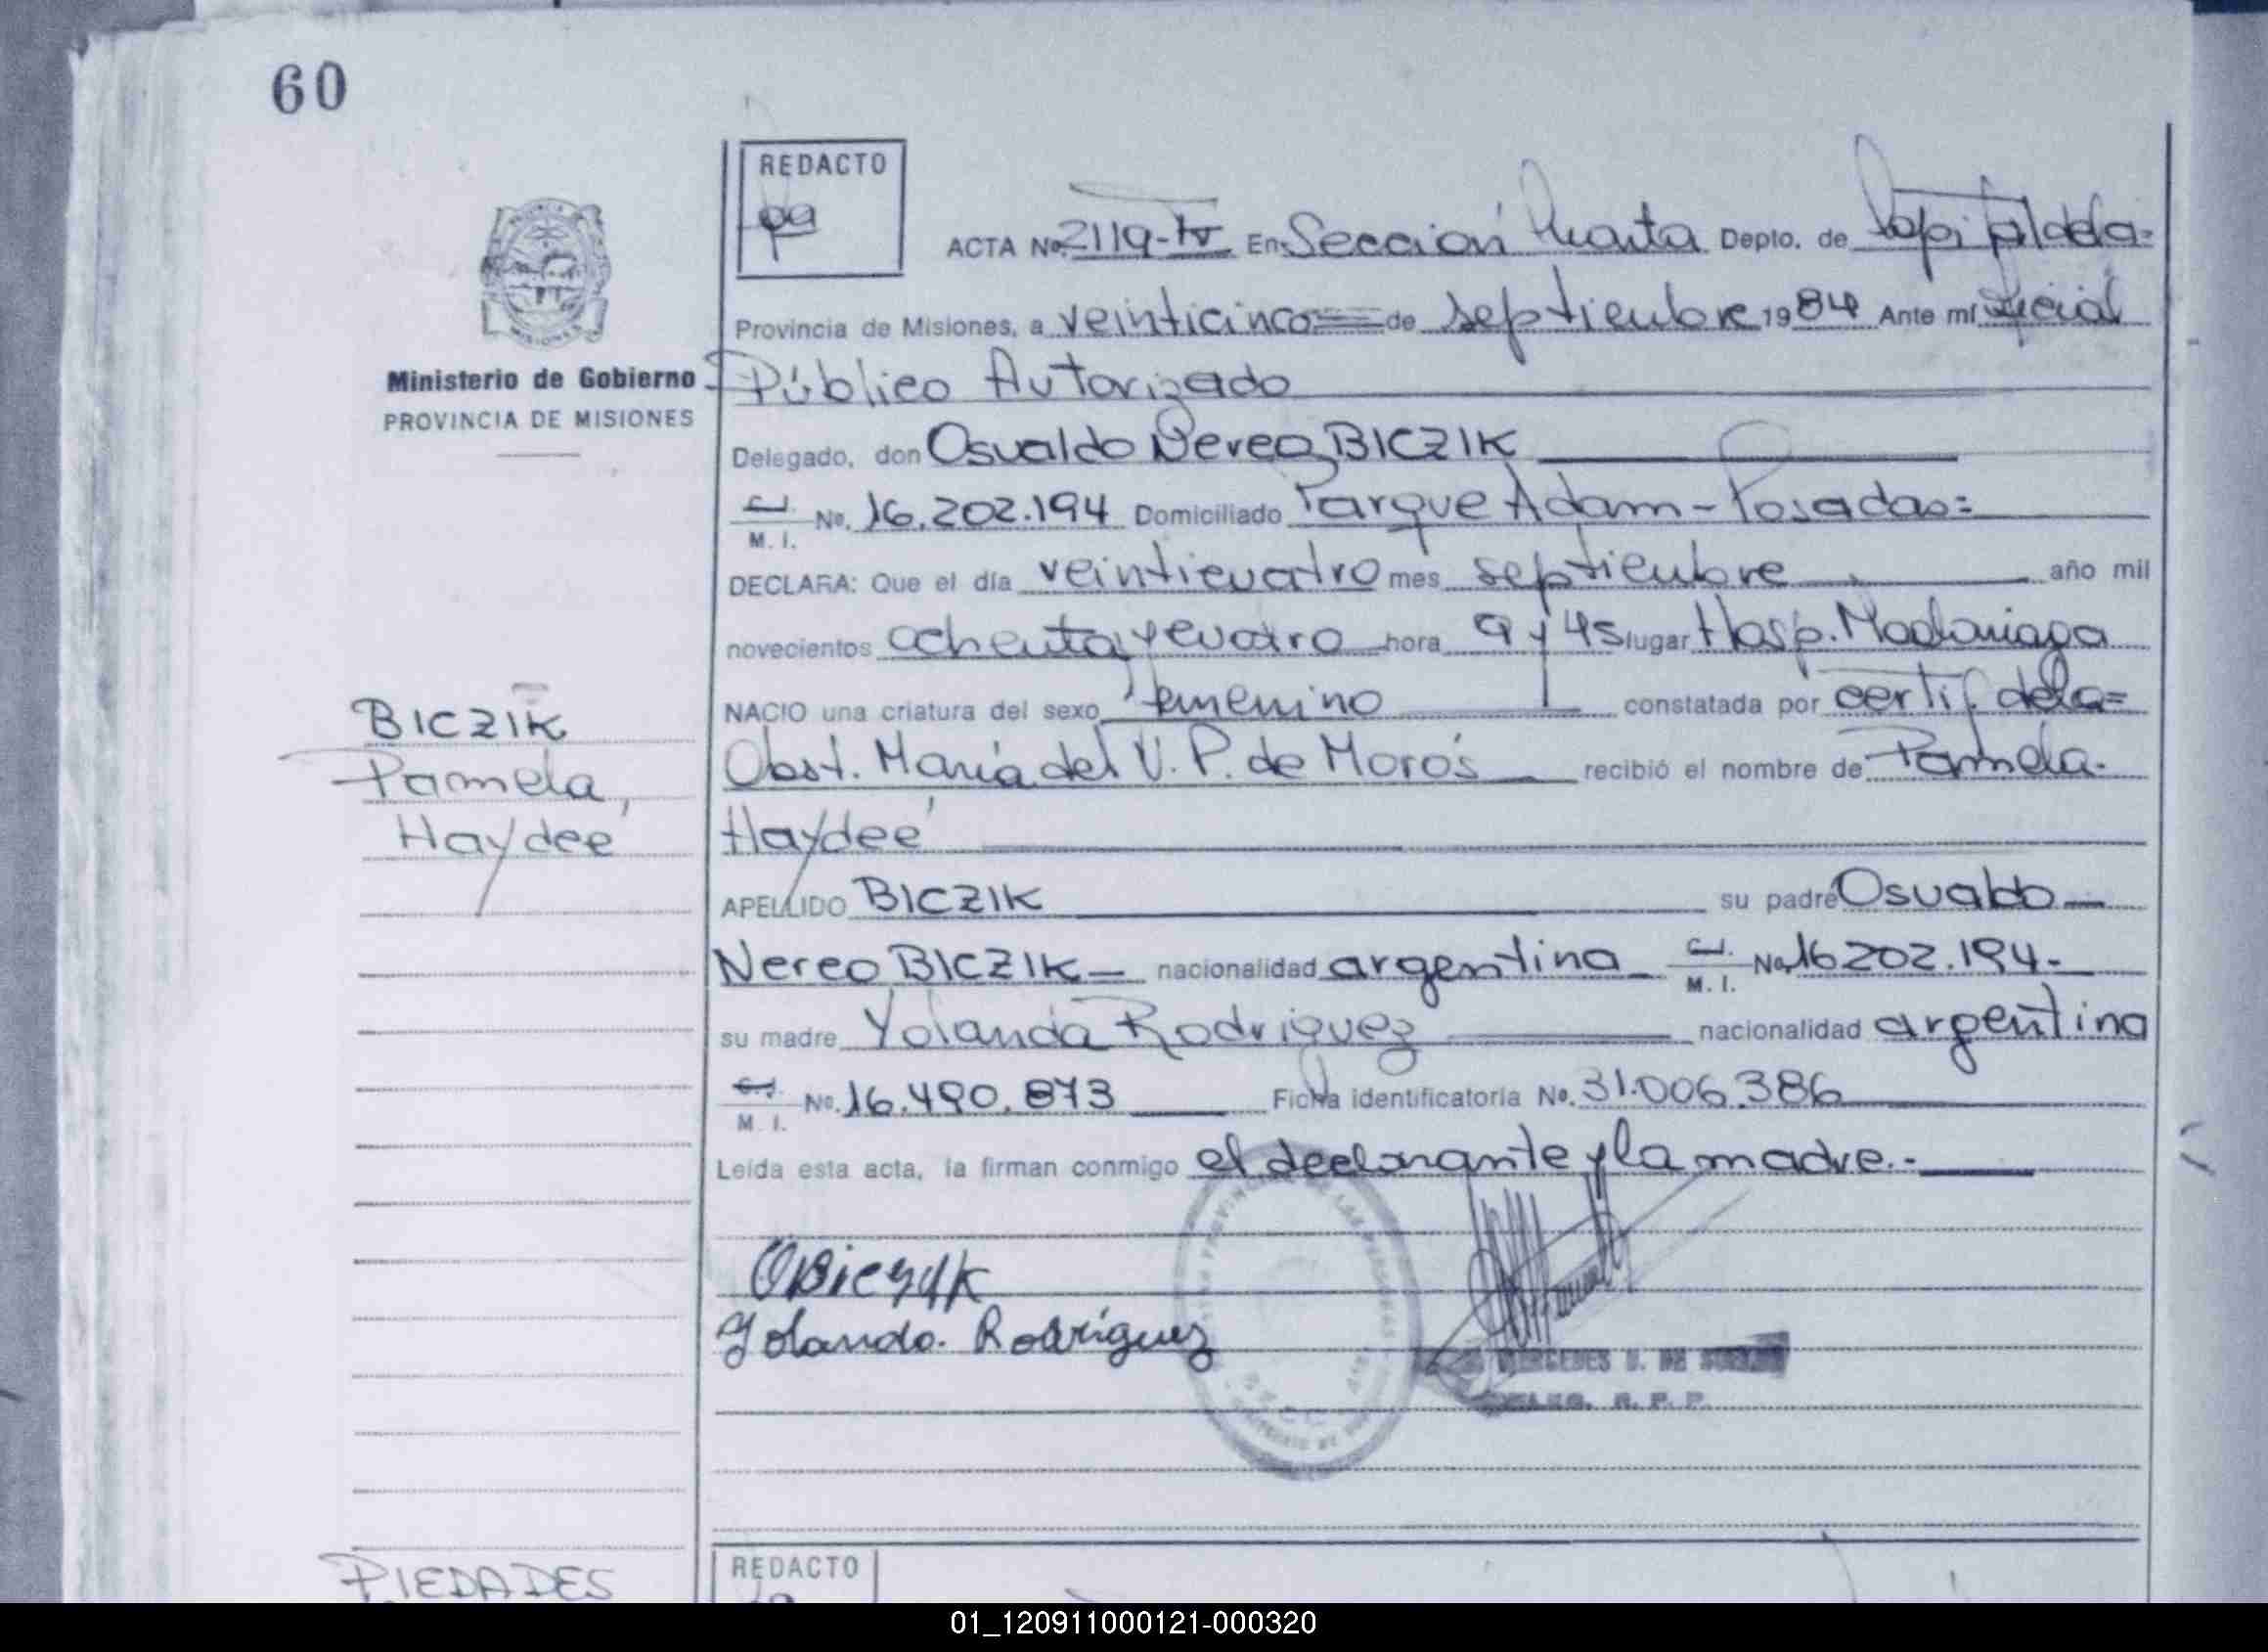 60
REDACTO
ACTA No. 2119-IV En Sección Cuarta Depto. de Capital de la=
Provincia de Misiones, a veinticinco== de septiembre 1984 Ante mí Oficial
Ministerio de Gobierno
PROVINCIA DE MISIONES
Público Autorizado
Delegado, don Osvaldo Nereo BICZIK
C.I.
M. I. No. 16.202.194 Domiciliado Parque Adam - Posadas=
DECLARA: Que el día veinticuatro mes septiembre año mil
novecientos ochenta y cuatro hora 9 y 45 lugar Hosp. Madariaga
NACIO una criatura del sexo femenino constatada por certif de la=
Obst. María del V. P. de Morós recibió el nombre de Pamela-
Haydeé
BICZIK
Pamela,
Haydeé
APELLIDO BICZIK su padre Osvaldo
Nereo BICZIK= nacionalidad argentina C.I.
M. I. No. 16202.194-
su madre Yolanda Rodriguez nacionalidad argentina
C.I.
M. I. No. 16.490.873 Ficha identificatoria No. 31.006.386
Leída esta acta, la firman conmigo el declarante y la madre.-
OBiczik
Yolanda. Rodríguez
MERCEDES
R. P. P.
PIEDADES
REDACTO
01_120911000121-000320